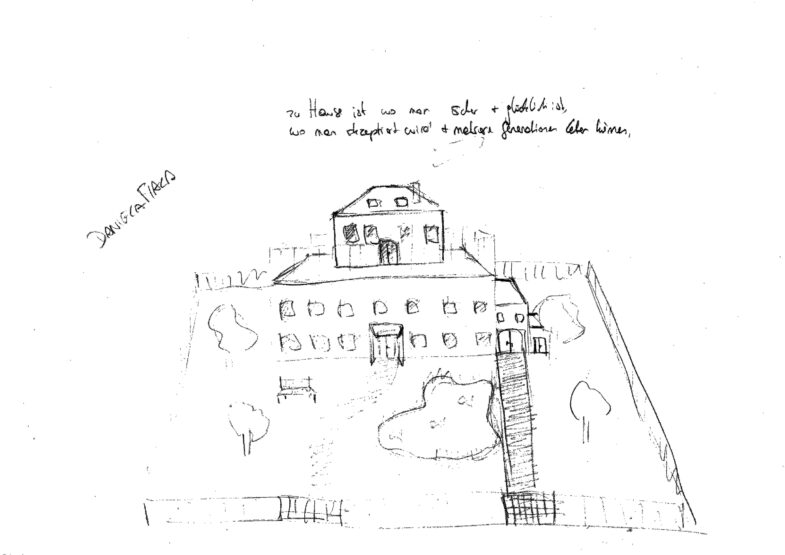 zu Hause ist wo man sicher + glücklich ist,
wo man akzeptiert wird + mehrere Generationen leben können,
DANIELA